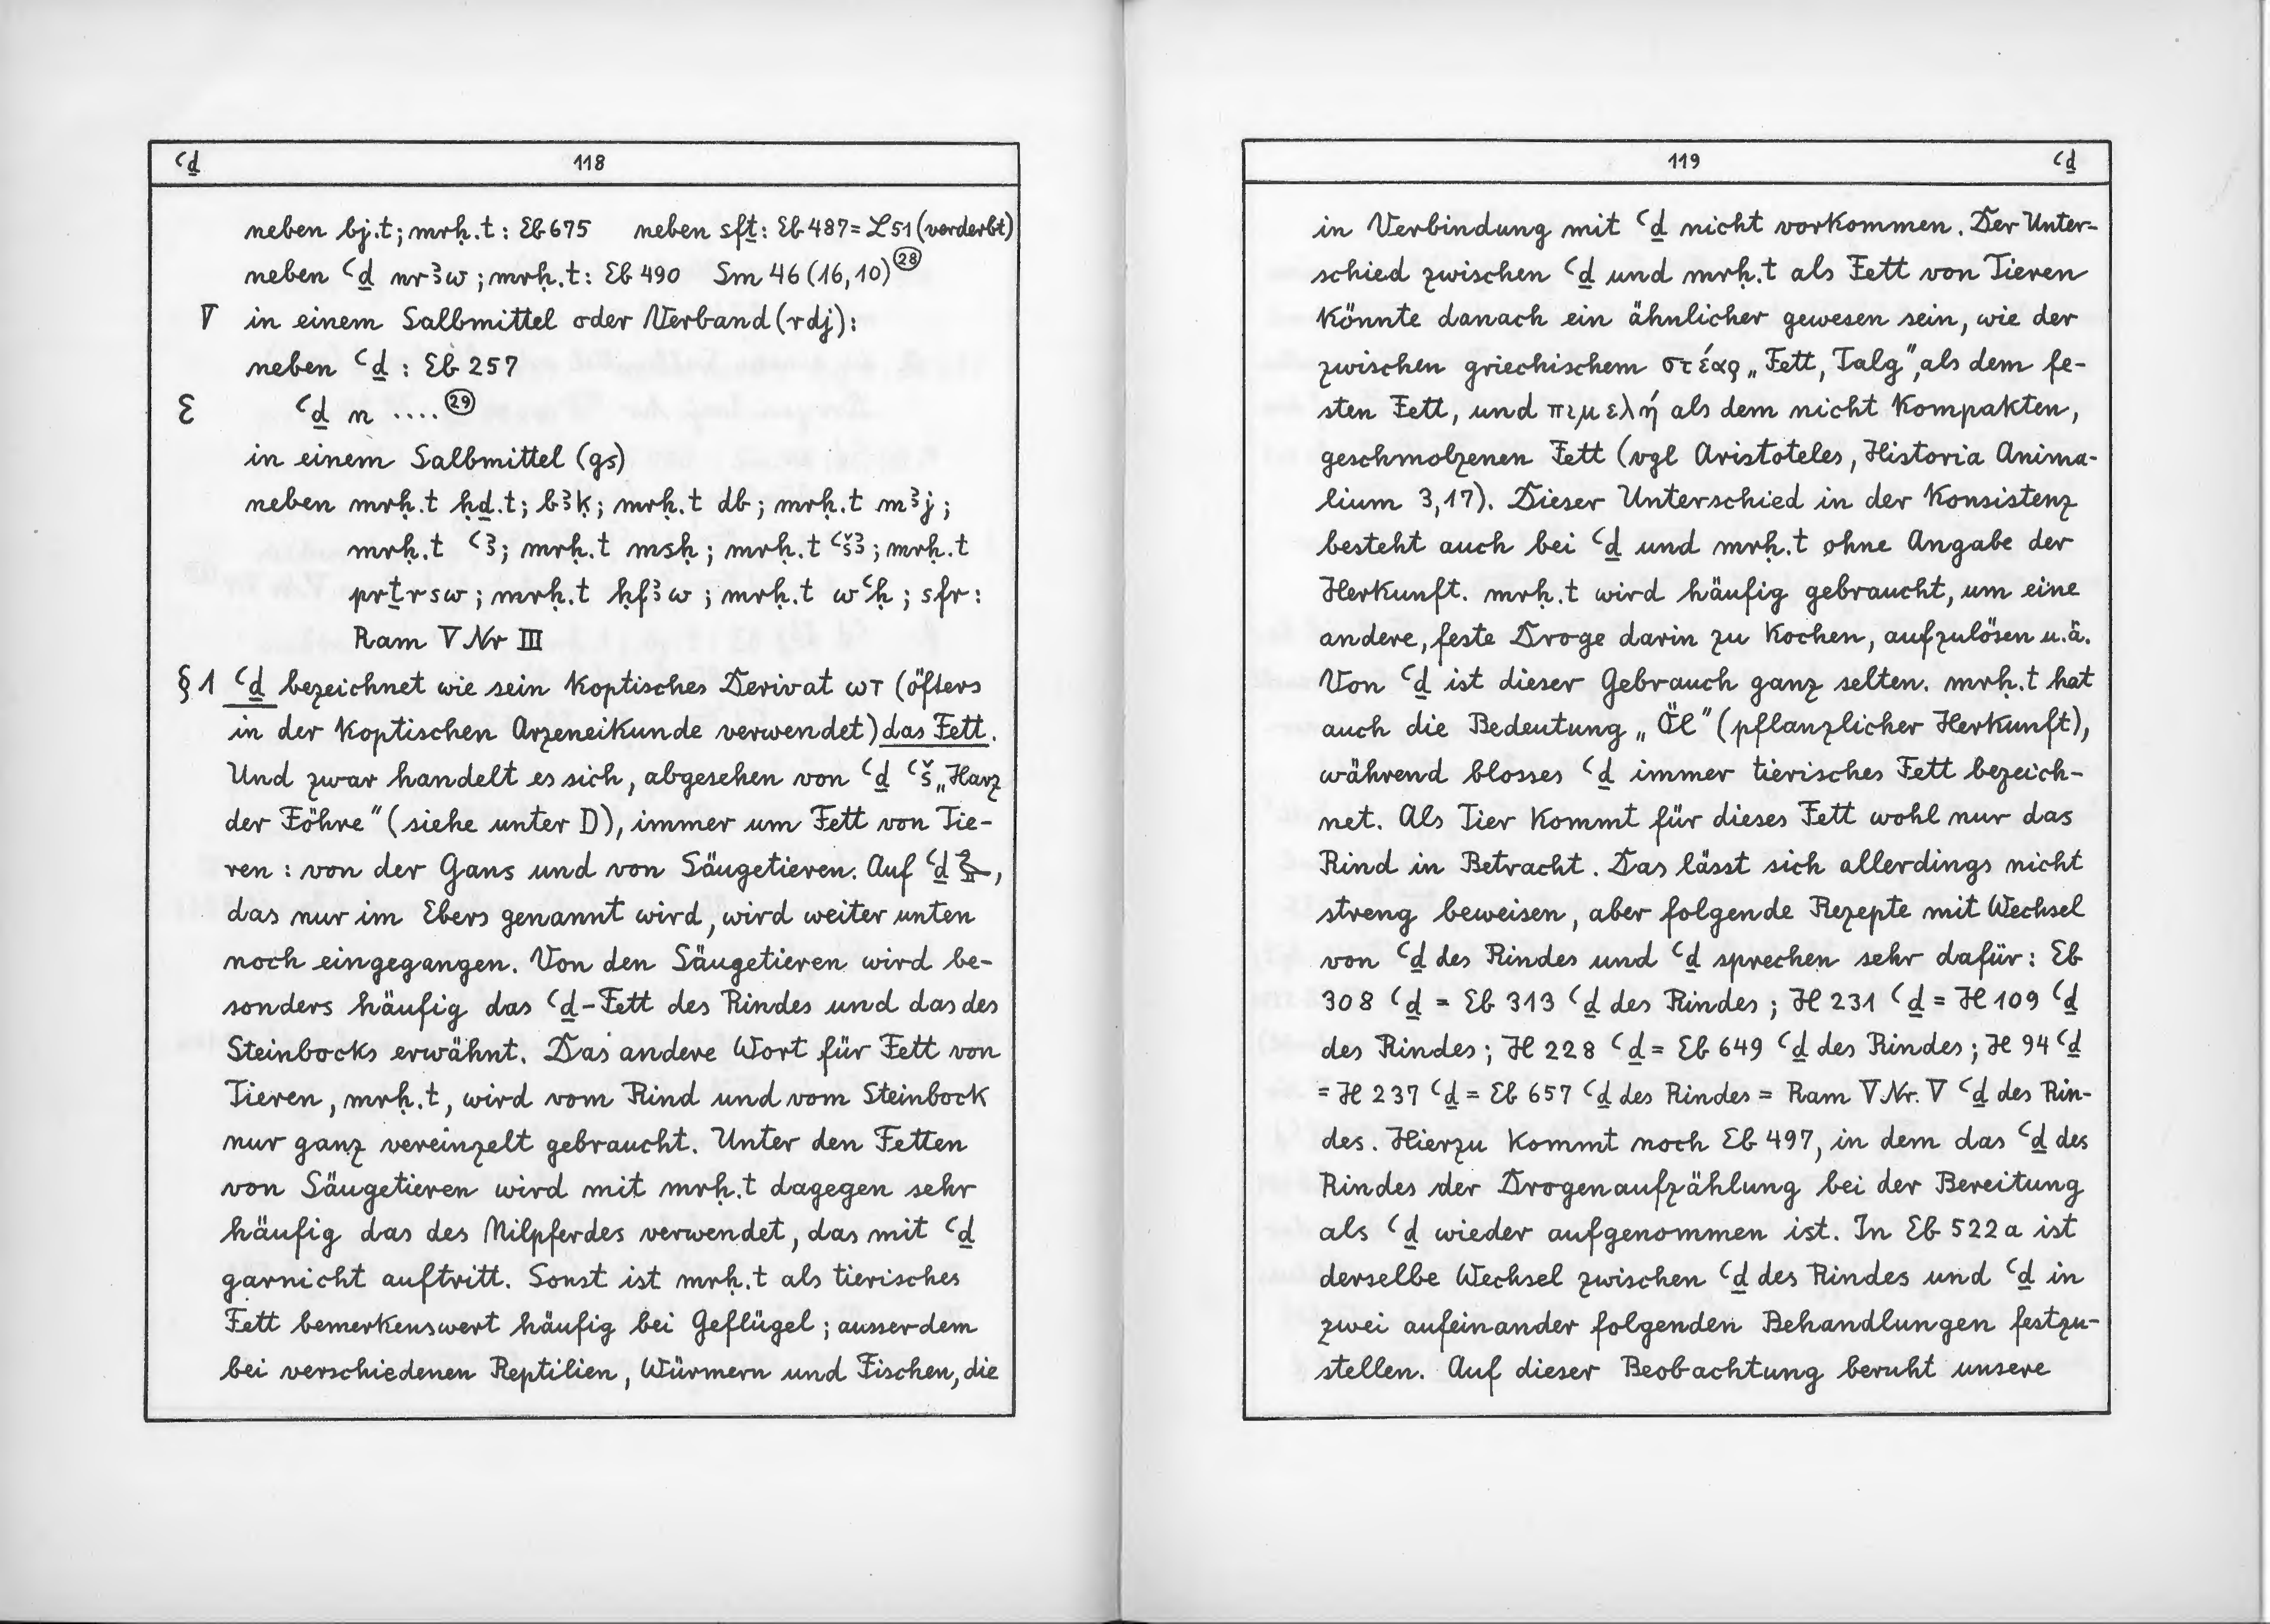 ꜥḏ 118
neben bj.t; mrḥ.t: Eb 675 neben sfṯ: Eb 487 = L 51 (verderbt)
neben ꜥḏ nrꜣw; mrḥ.t: Eb 490 Sm 46 (16,10) ㉘
V in einem Salbmittel oder Verband (rdj):
neben ꜥḏ : Eb 257
E ꜥḏ n .... ㉙
in einem Salbmittel (gs)
neben mrḥ.t ḥḏ.t; bꜣḳ; mrḥ.t db; mrḥ.t mꜣj;
mrḥ.t ꜥꜣ; mrḥ.t msḥ; mrḥ.t ꜥšꜣ; mrḥ.t
prṯrsw; mrḥ.t ḥfꜣw; mrḥ.t wꜥḥ; sfr:
Ram V Nr III
§ 1 ꜥḏ bezeichnet wie sein koptisches Derivat ⲱⲧ (öfters
in der koptischen Arzeneikunde verwendet) das Fett.
Und zwar handelt es sich, abgesehen von ꜥḏ ꜥš „Harz
der Föhre" (siehe unter D), immer um Fett von Tie-
ren : von der Gans und von Säugetieren. Auf ꜥḏ ,
das nur im Ebers genannt wird, wird weiter unten
noch eingegangen. Von den Säugetieren wird be-
sonders häufig das ꜥḏ-Fett des Rindes und das des
Steinbocks erwähnt. Das andere Wort für Fett von
Tieren, mrḥ.t, wird vom Rind und vom Steinbock
nur ganz vereinzelt gebraucht. Unter den Fetten
von Säugetieren wird mit mrḥ.t dagegen sehr
häufig das des Nilpferdes verwendet, das mit ꜥḏ
garnicht auftritt. Sonst ist mrḥ.t als tierisches
Fett bemerkenswert häufig bei Geflügel; ausserdem
bei verschiedenen Reptilien, Würmern und Fischen, die
119 ꜥḏ
in Verbindung mit ꜥḏ nicht vorkommen. Der Unter-
schied zwischen ꜥḏ und mrḥ.t als Fett von Tieren
könnte danach ein ähnlicher gewesen sein, wie der
zwischen griechischem στέαρ „Fett, Talg", als dem fe-
sten Fett, und πιμελή als dem nicht kompakten,
geschmolzenen Fett (vgl Aristoteles, Historia Anima-
lium 3,17). Dieser Unterschied in der Konsistenz
besteht auch bei ꜥḏ und mrḥ.t ohne Angabe der
Herkunft. mrḥ.t wird häufig gebraucht, um eine
andere, feste Droge darin zu kochen, aufzulösen u.ä.
Von ꜥḏ ist dieser Gebrauch ganz selten. mrḥ.t hat
auch die Bedeutung „Öl" (pflanzlicher Herkunft),
während blosses ꜥḏ immer tierisches Fett bezeich-
net. Als Tier kommt für dieses Fett wohl nur das
Rind in Betracht. Das lässt sich allerdings nicht
streng beweisen, aber folgende Rezepte mit Wechsel
von ꜥḏ des Rindes und ꜥḏ sprechen sehr dafür: Eb
308 ꜥḏ = Eb 313 ꜥḏ des Rindes; H 231 ꜥḏ = H 109 ꜥḏ
des Rindes; H 228 ꜥḏ = Eb 649 ꜥḏ des Rindes; H 94 ꜥḏ
= H 237 ꜥḏ = Eb 657 ꜥḏ des Rindes = Ram V Nr. V ꜥḏ des Rin-
des. Hierzu kommt noch Eb 497, in dem das ꜥḏ des
Rindes der Drogenaufzählung bei der Bereitung
als ꜥḏ wieder aufgenommen ist. In Eb 522a ist
derselbe Wechsel zwischen ꜥḏ des Rindes und ꜥḏ in
zwei aufeinander folgenden Behandlungen festzu-
stellen. Auf dieser Beobachtung beruht unsere